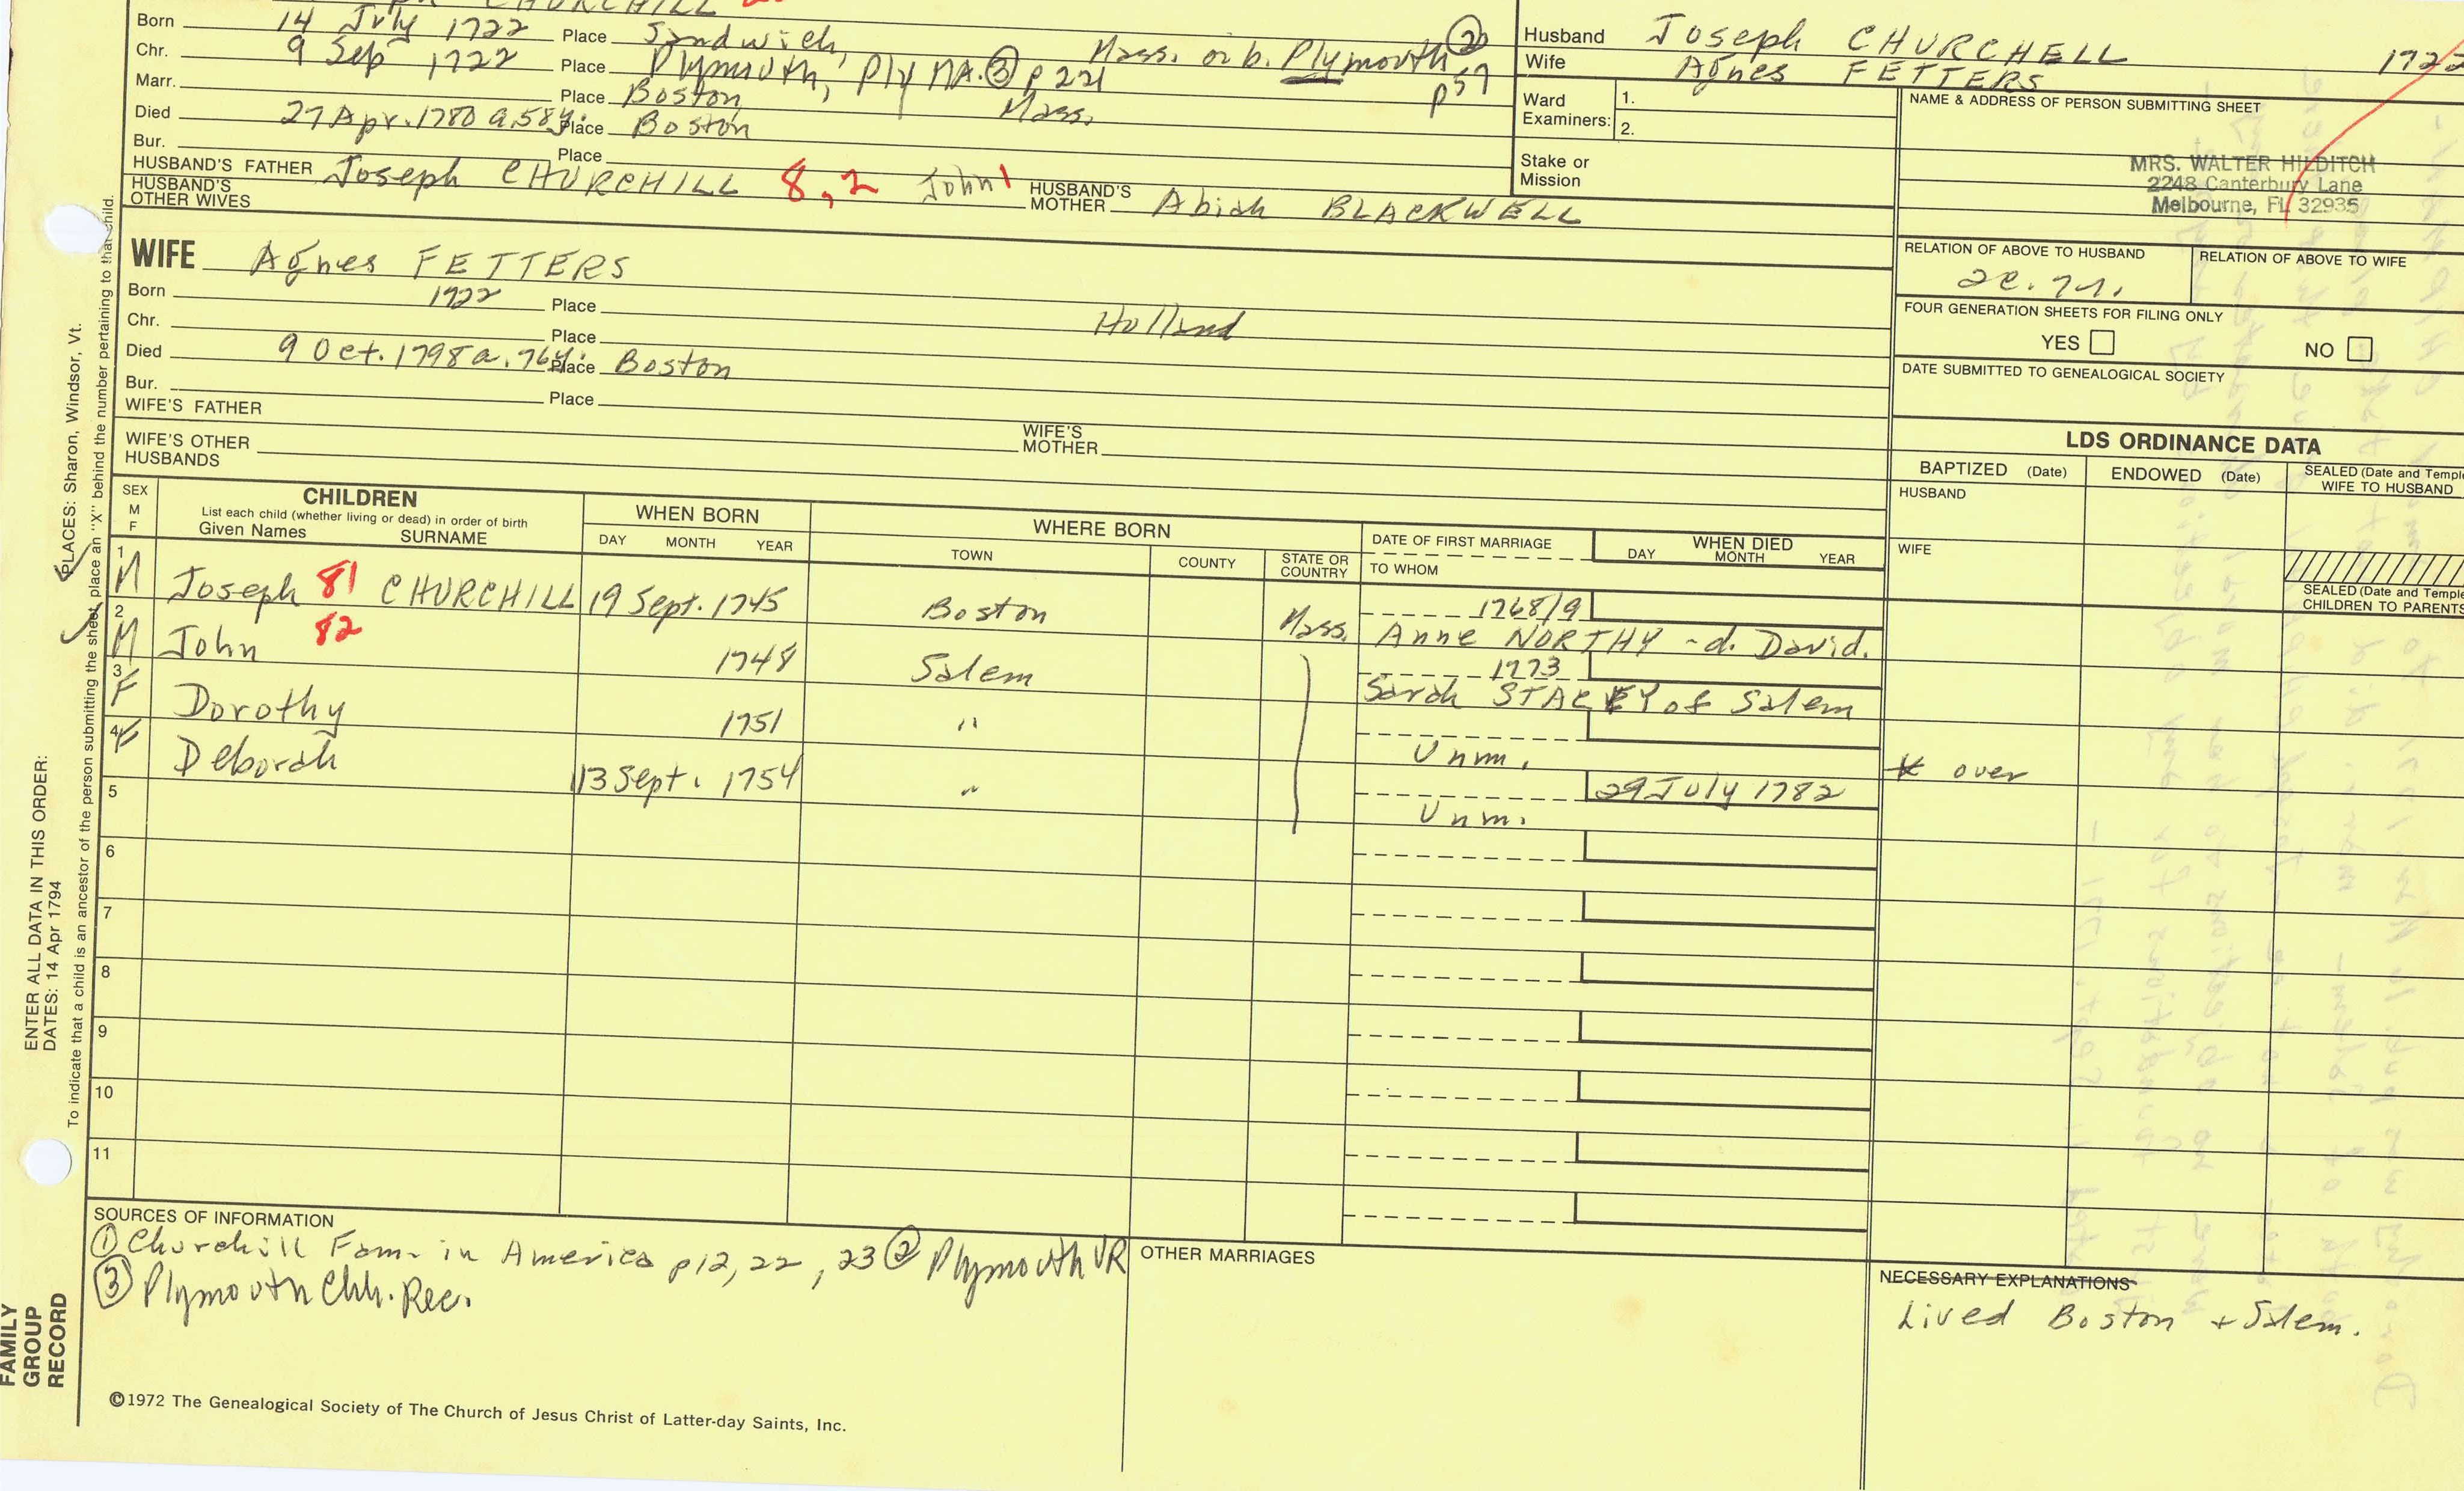 CHURCHILL
Born 14 July 1722 Place Sandwich, Mass. or b. Plymouth ②
Chr. 9 Sep 1722 Place Plymouth, Ply MA. ③ p 221 p 57
Marr. Place Boston, Mass.
Died 27 Apr. 1780 a. 58 y. Place Boston
Bur. Place
HUSBAND'S FATHER Joseph CHURCHILL 8,2 John 1 HUSBAND'S MOTHER Abiah BLACKWELL
HUSBAND'S OTHER WIVES
Husband Joseph CHURCHELL 1722
Wife Agnes FETTERS
Ward Examiners: 1.
2.
Stake or Mission
NAME & ADDRESS OF PERSON SUBMITTING SHEET
MRS. WALTER HILDITCH
2248 Canterbury Lane
Melbourne, FL 32935
RELATION OF ABOVE TO HUSBAND RELATION OF ABOVE TO WIFE
FOUR GENERATION SHEETS FOR FILING ONLY
YES NO
DATE SUBMITTED TO GENEALOGICAL SOCIETY
WIFE Agnes FETTERS
Born 1722 Place Holland
Chr. Place
Died 9 Oct. 1798 a. 76 y. Place Boston
Bur. Place
WIFE'S FATHER WIFE'S MOTHER
WIFE'S OTHER HUSBANDS
LDS ORDINANCE DATA
BAPTIZED (Date) ENDOWED (Date) SEALED (Date and Temple
WIFE TO HUSBAND
HUSBAND
WIFE
SEALED (Date and Temple
CHILDREN TO PARENTS
SEX M F CHILDREN WHEN BORN WHERE BORN DATE OF FIRST MARRIAGE WHEN DIED
List each child (whether living or dead) in order of birth
Given Names SURNAME DAY MONTH YEAR TOWN COUNTY STATE OR COUNTRY TO WHOM DAY MONTH YEAR
1 M Joseph 81 CHURCHILL 19 Sept. 1745 Boston Mass. 1768/9
Anne NORTHY - d. David.
2 M John 82 1748 Salem 1773
Sarah STACEY of Salem
3 F Dorothy 1751 "
Unm.
4 F Deborah 13 Sept. 1754 " 29 July 1782
Unm.
over
5
6
7
8
9
10
11
SOURCES OF INFORMATION
① Churchill Fam. in America p 12, 22, 23 ② Plymouth VR
③ Plymouth Chh. Rec.
OTHER MARRIAGES
NECESSARY EXPLANATIONS
Lived Boston + Salem.
©1972 The Genealogical Society of The Church of Jesus Christ of Latter-day Saints, Inc.
FAMILY GROUP RECORD
ENTER ALL DATA IN THIS ORDER:
DATES: 14 Apr 1794
PLACES: Sharon, Windsor, Vt.
To indicate that a child is an ancestor of the person submitting the sheet, place an "X" behind the number pertaining to that child.